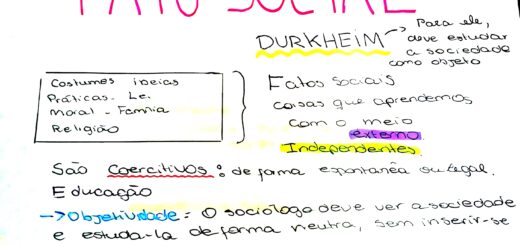 FATO SOCIAL
DURKHEIM → Para ele,
deve estudar
a sociedade
como objeto
Costumes ideias
Práticas. Lei
Moral - Família
Religião
Fatos sociais
coisas que aprendemos
com o meio
externo
Independentes.
São Coercitivos: de forma espontânea ou legal.
Educação
→ Objetividade = O sociólogo deve ver a sociedade
e estuda-la de forma neutra, sem inserir-se